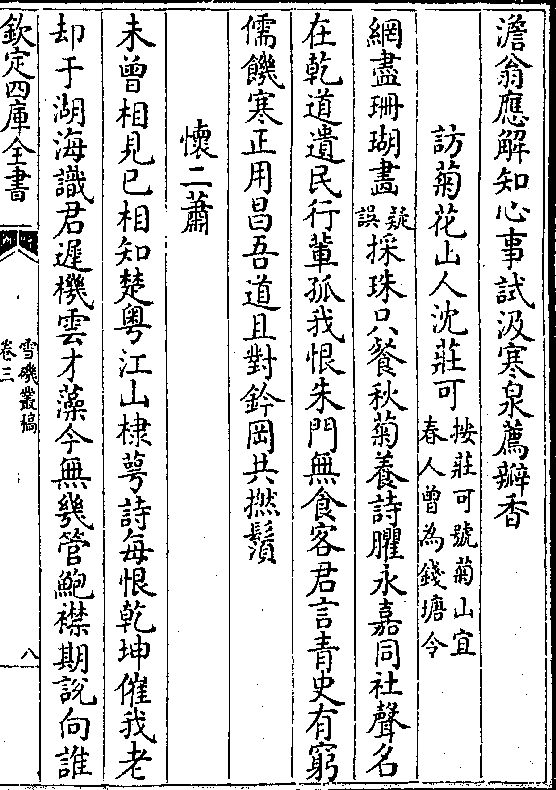 澹翁應解知心事試汲寒泉薦瓣香
訪菊花山人沈莊可按莊可號菊山宜春人曾為錢塘令
網盡珊瑚畵疑誤採珠只餐秋菊養詩臞永嘉同社聲名
在乾道遺民行輩孤我恨朱門無食客君言青史有窮
儒饑寒正用昌吾道且對鈐岡共撚鬚
懷二蕭
未曾相見已相知楚粤江山棣萼詩每恨乾坤催我老
却于湖海識君遲機雲才藻今無幾管鮑襟期說向誰
欽定四庫全書
雪磯叢稿
卷三
八